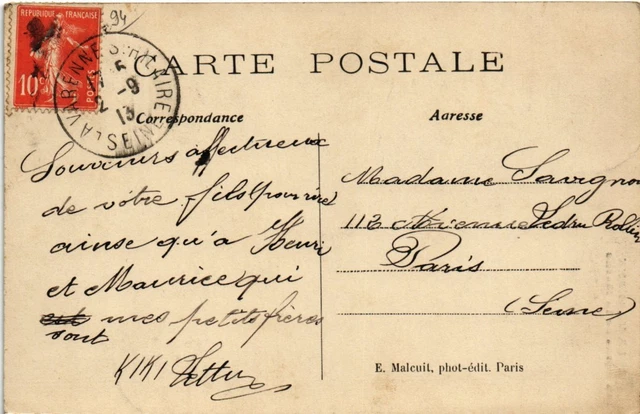 94
REPUBLIQUE FRANÇAISE
10c
POSTES
LA VARENNE-ST-HILAIRE
17 -
2 -9
13
SEINE
CARTE POSTALE
Correspondance
Souvenirs affectueux
de vôtre fils (pour rire)
ainse qu'à Henri
et Maurice qui
sont mes petits frères
KIKI
Adresse
Madame Savignon
112 Avenue Ledru Rollin
Paris
(Seine)
E. Malcuit, phot-édit. Paris